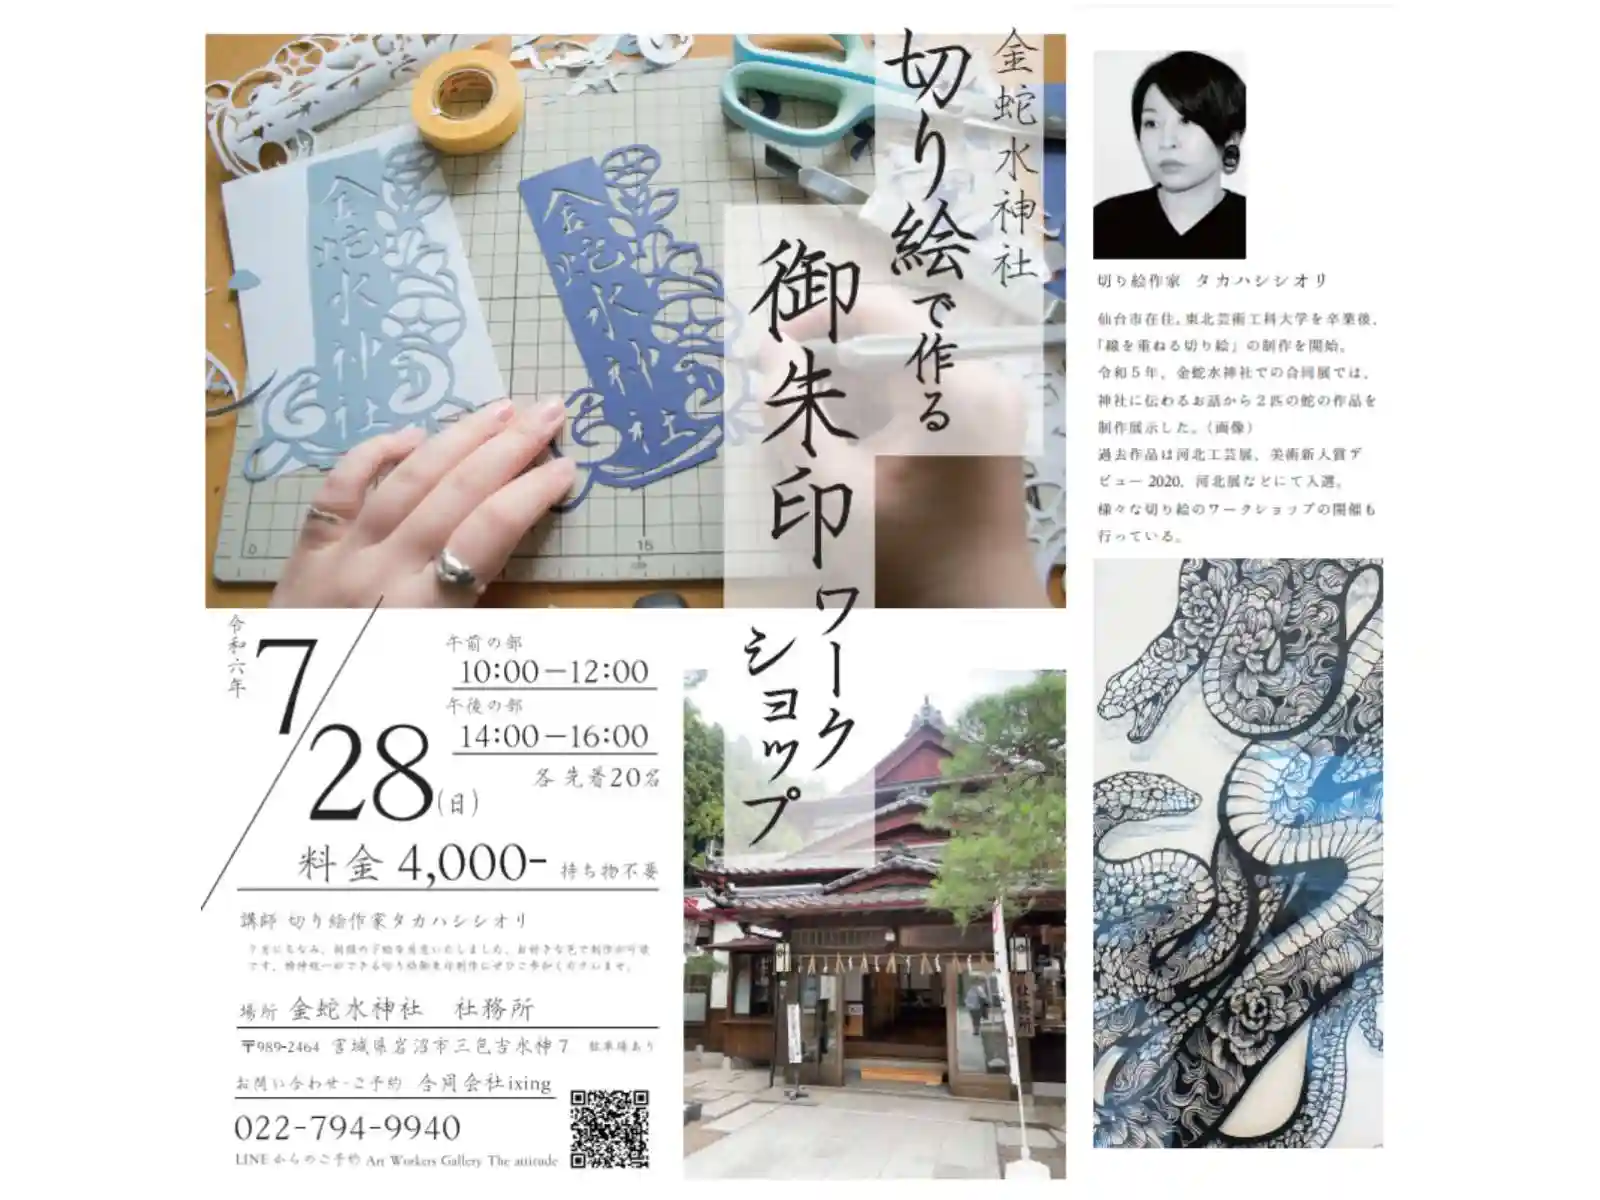 金蛇水神社
切り絵で作る
御朱印ワーク
ショップ
金蛇水神社
金蛇水神社
0
15
令和六年
7/28(日)
午前の部
10:00－12:00
午後の部
14:00－16:00
各 先着20名
料金 4,000- 持ち物不要
講師 切り絵作家タカハシシオリ
場所 金蛇水神社　社務所
〒989-2464 宮城県岩沼市三色吉水神7 駐車場あり
お問い合わせ・ご予約 合同会社ixing
022-794-9940
LINEからのご予約 Art Workers Gallery The attitude
社務所
切り絵作家 タカハシシオリ
仙台市在住。東北芸術工科大学を卒業後、
「線を重ねる切り絵」の制作を開始。
令和5年、金蛇水神社での合同展では、
神社に伝わるお話から2匹の蛇の作品を
制作展示した。(画像)
過去作品は河北工芸展、美術新人賞デ
ビュー2020、河北展などにて入選。
様々な切り絵のワークショップの開催も
行っている。